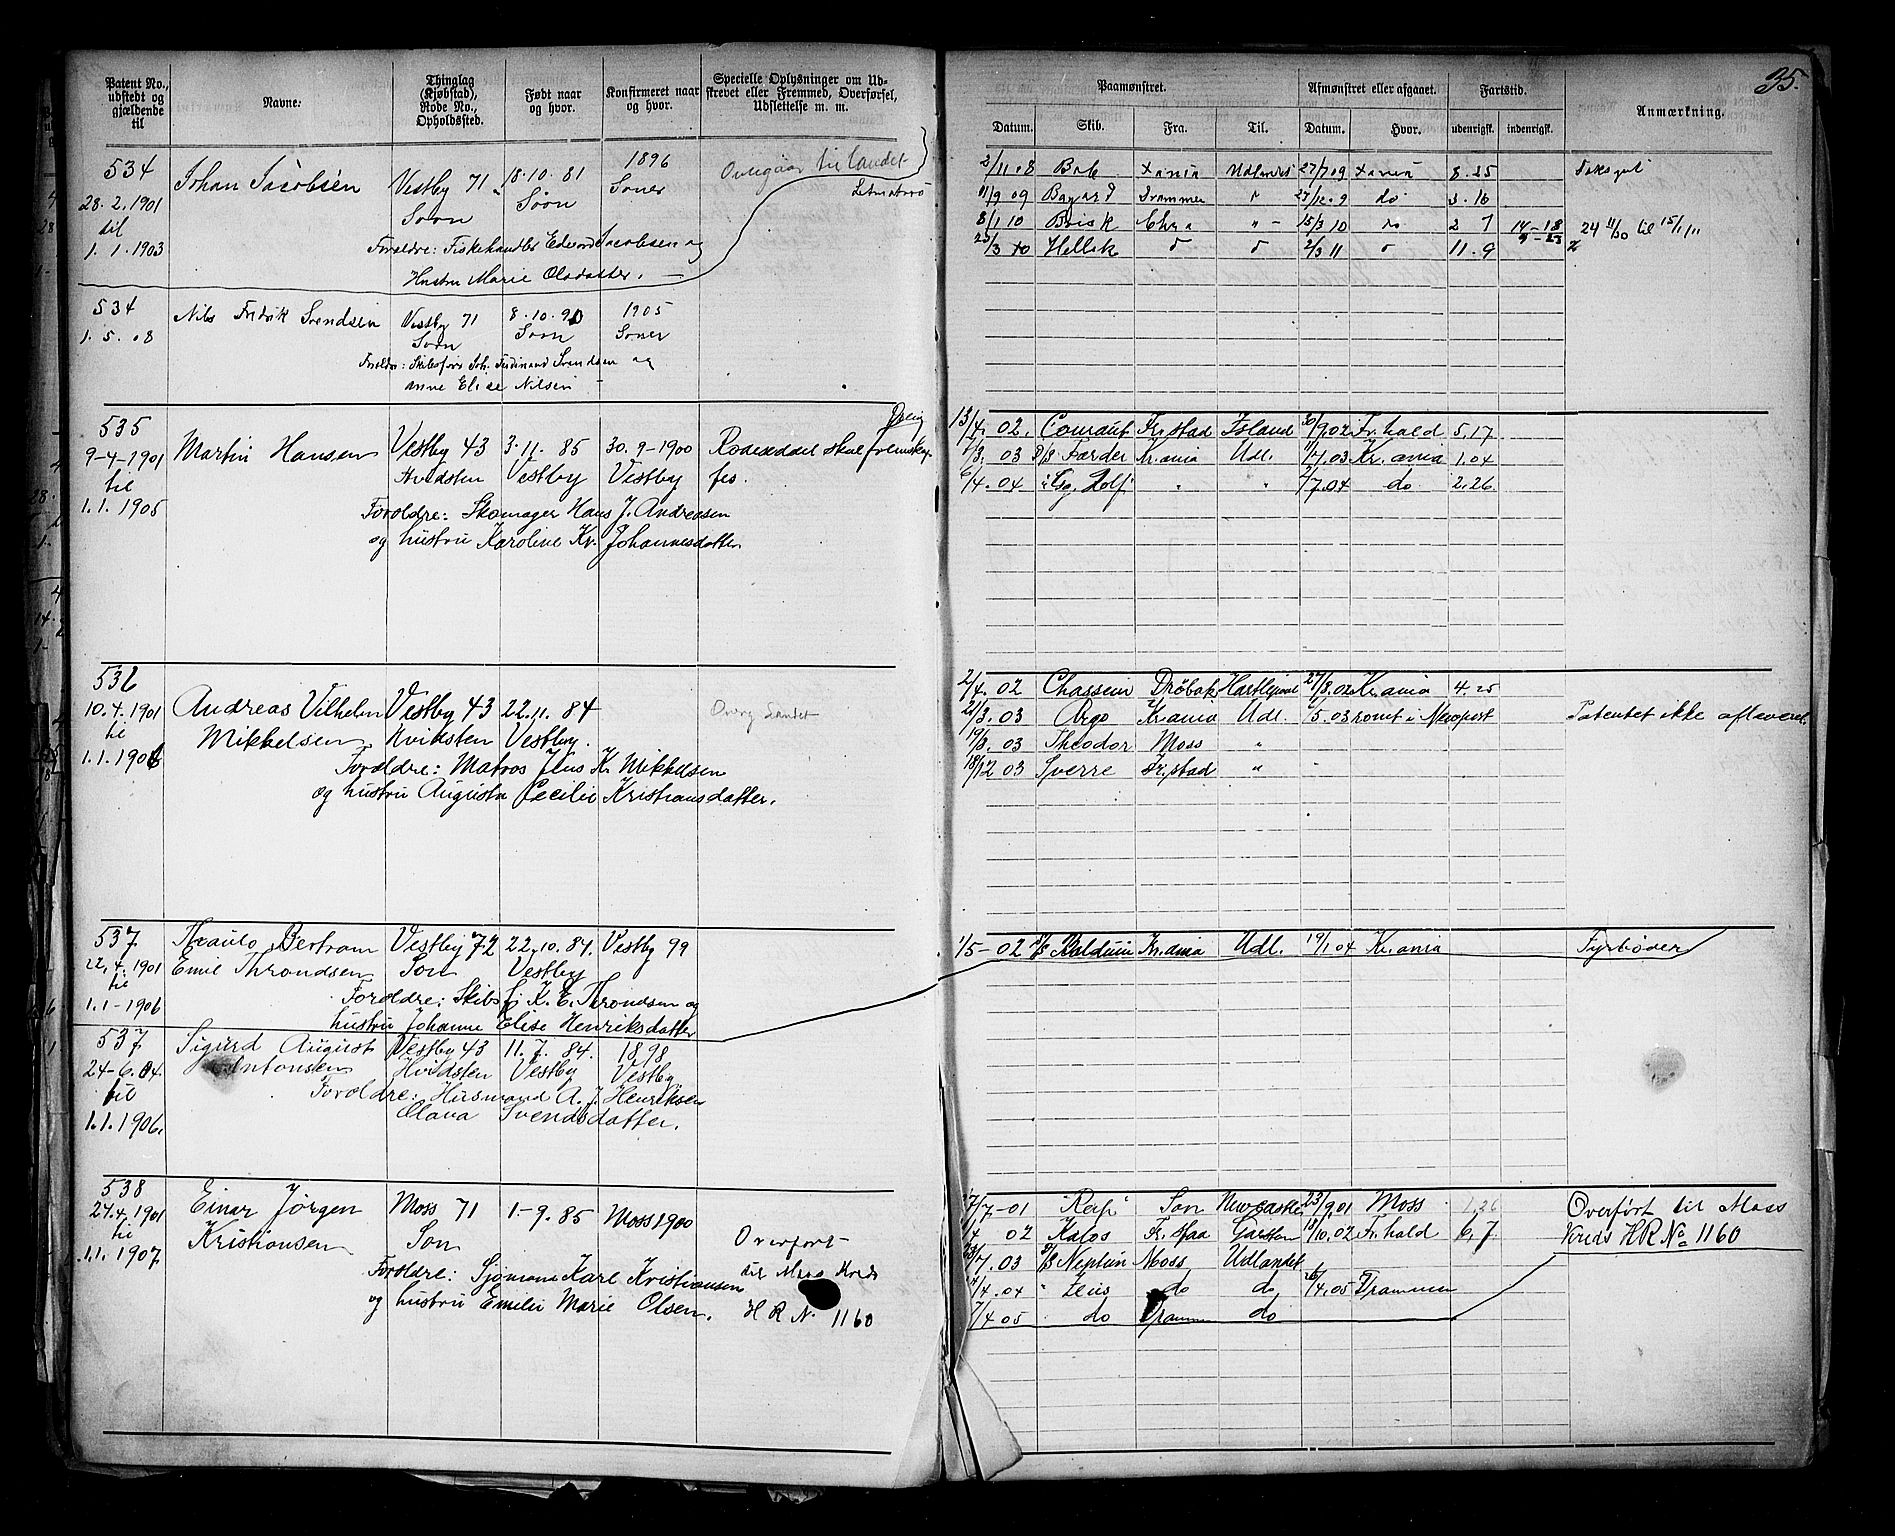 35.
Patent No., udstedt og gjældende til
Navne.
Thinglag (Kjøbstad), Rode No., Opholdssted.
Født naar og hvor.
Konfirmeret naar og hvor.
Specielle Oplysninger om Udskrevet eller Fremmed, Overførsel, Udslettelse m. m.
Paamønstret.
Afmønstret eller afgaaet.
Fartstid.
Anmærkning.
Datum. Skib. Fra. Til. Datum. Hvor. udenrigsk. indenrigsk.
534
28. 2. 1901
til
1. 1. 1903
Johan Jacobsen
Vestby 71
Soon
8. 10. 81
Soon
1896
Soner
Overgaar til Landet
Forældre: Fiskehandler Edvard Jacobsen og
Hustru Marie Olsdatter.
2/11 08 Bak Xania Udlandet 27/7 09 Xania 8. 25
11/9 09 Bayard Drammen 27/12. 9 do 3. 16
8/1 10 Brisk Chra " - 15/3 10 do 2 7 24 11/10 til 15/11 11
25/3 10 Hellik 2/3 11 11. 9
534
1. 5. 08
Nils Fredrik Svendsen
Vestby 71
Soon
8. 10. 90
Soon
1905
Soner
Forældre: Skibsfører Joh. Ferdinand Svendsen og
Anne Elise Nilsen
535
9-4-1901
til
1. 1. 1905
Martin Hansen
Vestby 43
Hvidsten
3. 11. 85
Vestby
30. 9-1900
Vestby
Forældre: Skomager Hans J. Andreasen
og hustru Karoline Kr. Johannesdatter
13/4. 02. Courant Fr.stad Island 30/9. 02 Fr.hald 5. 17
03 D/S Færder Kr.ania Udl. 03 Kr.ania 1. 04
6/4. 04 " " /7. 04 do 2. 26.
536
10. 4. 1901
til
1. 1. 1906
Andreas Vilhelm
Mikkelsen
Vestby 43
Hvidsten
22. 11. 84
Vestby.
Overg Landet
Forældre: Matros Jens K. Mikkelsen
og hustru Augusta Cecilie Kristiansdatter.
2/4. 02 Chassein Drøbak Hartlepool 27/8. 02 Kr.ania 4. 25
2/3. 03 Argo Kr.ania Udl. /5. 03 rømt i Newport Patentet ikke afleveret.
19/8. 03 Theodor Moss "
18/12 03 Sverre Fr.stad "
537
22. 4. 1901
til
1. 1-1906
Thraulo Bertram
Emil Throndsen
Vestby 72
Son
22. 10. 84.
Vestby
Vestby 99
Forældre: Skibsf. K. E. Throndsen og
hustru Johanne Elise Henriksdatter
1/5-02 D/S Balduin Kr.ania Udl. 19/1. 04 Kr.ania Fyrbøder
537
24-6. 04.
til
1. 1. 1906.
Sigurd August
Antonsen
Vestby 43
Hvidsten
11. 7. 84.
Vestby
1898
Vestby
Forældre: Husmand A. J. Henriksen
Olava Svendsdatter.
538
24. 4. 1901
til
1. 1. 1907.
Einar Jørgen
Kristiansen
Moss 71
Son
1-9. 85
Moss 1900
Overført
til Moss Kreds
H R N. 1160
Forældre: Sjømand Karl Kristiansen
og hustru Emilie Marie Olsen.
7-01 "Reif" Son Newcastle 23/9. 01 Moss 1. 26 Overført til Moss
1/4 02 Kalos 18/10. 02 Fr.hald 6. 7 Kreds H R No 1160
23/7. 03 D/S Neptun Moss Udlandet
/4. 04 " Zeus do do 26/4. 05 Drammen
7/4 05 do Drammen do